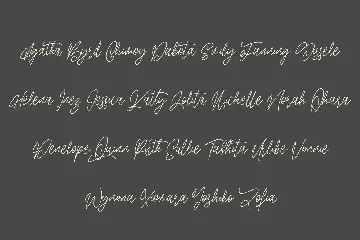 Agatha Byrd Chimoy Dakota Emily Fanning Gisele
Helena Inez Jessica Kitty Lolita Michelle Norah Ohara
Penelope Quinn Ruth Sillie Tabbita Vibbe Vonnie
Wynona Xomara Yoshiko Zofia